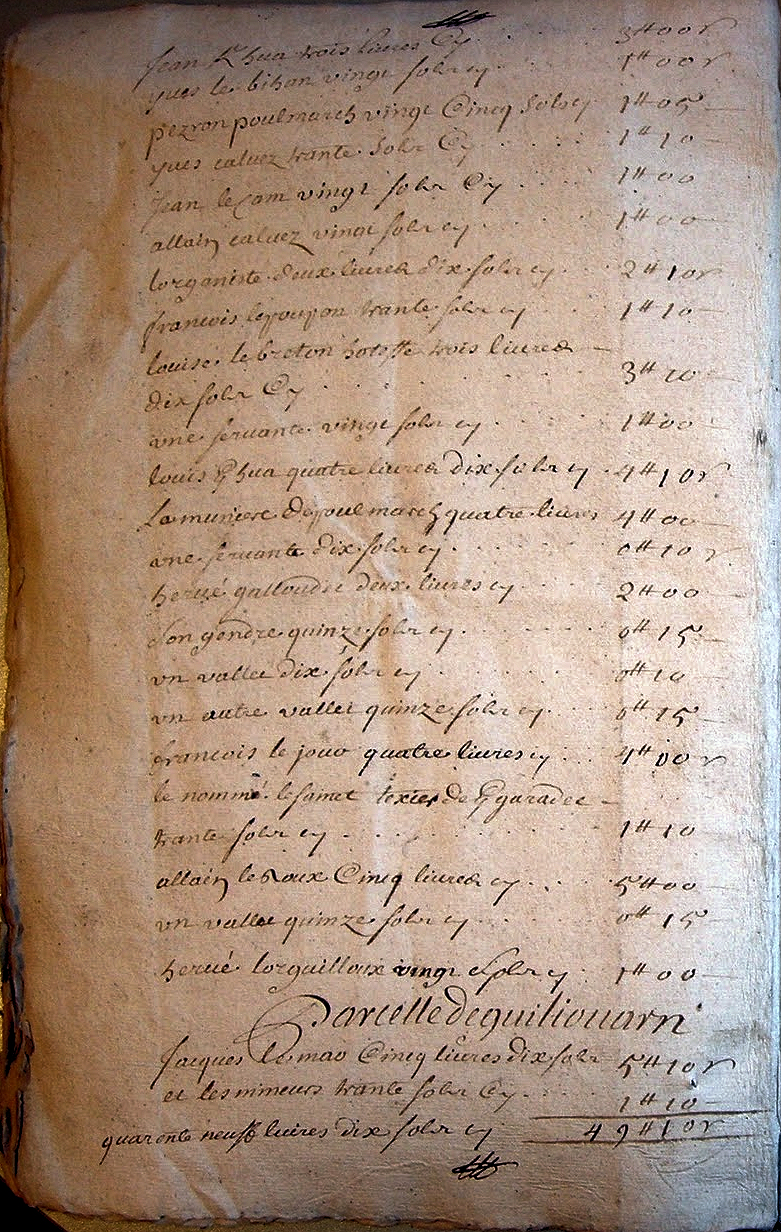 Jean Khua trois livres Cy 3# 00 s
yves le bihan vingt sols cy 1# 00 s
pezron poulmarch vingt Cinq Sols cy 1# 05
yves calvez trante Sols Cy 1# 10
Jean le Cam vingt sols Cy 1# 00
allain calvez vingt sols cy 1# 00
lorganiste deux livres dix sols cy 2# 10 s
francois lepoupon trante sols cy 1# 10
louise le breton hotesse trois livres
dix sols Cy 3# 10
une servante vingt sols cy 1# 00
louis Khua quatre livres dix sols cy 4# 10 s
La muniere de poulmarch quatre livres 4# 00
une servante dix sols cy 0# 10 s
hervé galloudec deux livres cy 2# 00
son gendre quinze sols cy 0# 15
vn vallet dix sols cy 0# 10
vn autre vallet quinze sols cy 0# 15
francois le jouo quatre livres cy 4# 00 s
le nommé le texier de Kgaradec
trante sols cy 1# 10
allain le Roux Cinq livres cy 5# 00
vn vallet quinze sols cy 0# 15
hervé lorguilloux vingt sols cy 1# 00
Parcelle de quiliouarn
Jacques Le mao Cinq livres dix sols 5# 10 s
et les mineurs trante sols Cy 1# 10
quarente neuff livres dix sols cy 49# 10 s